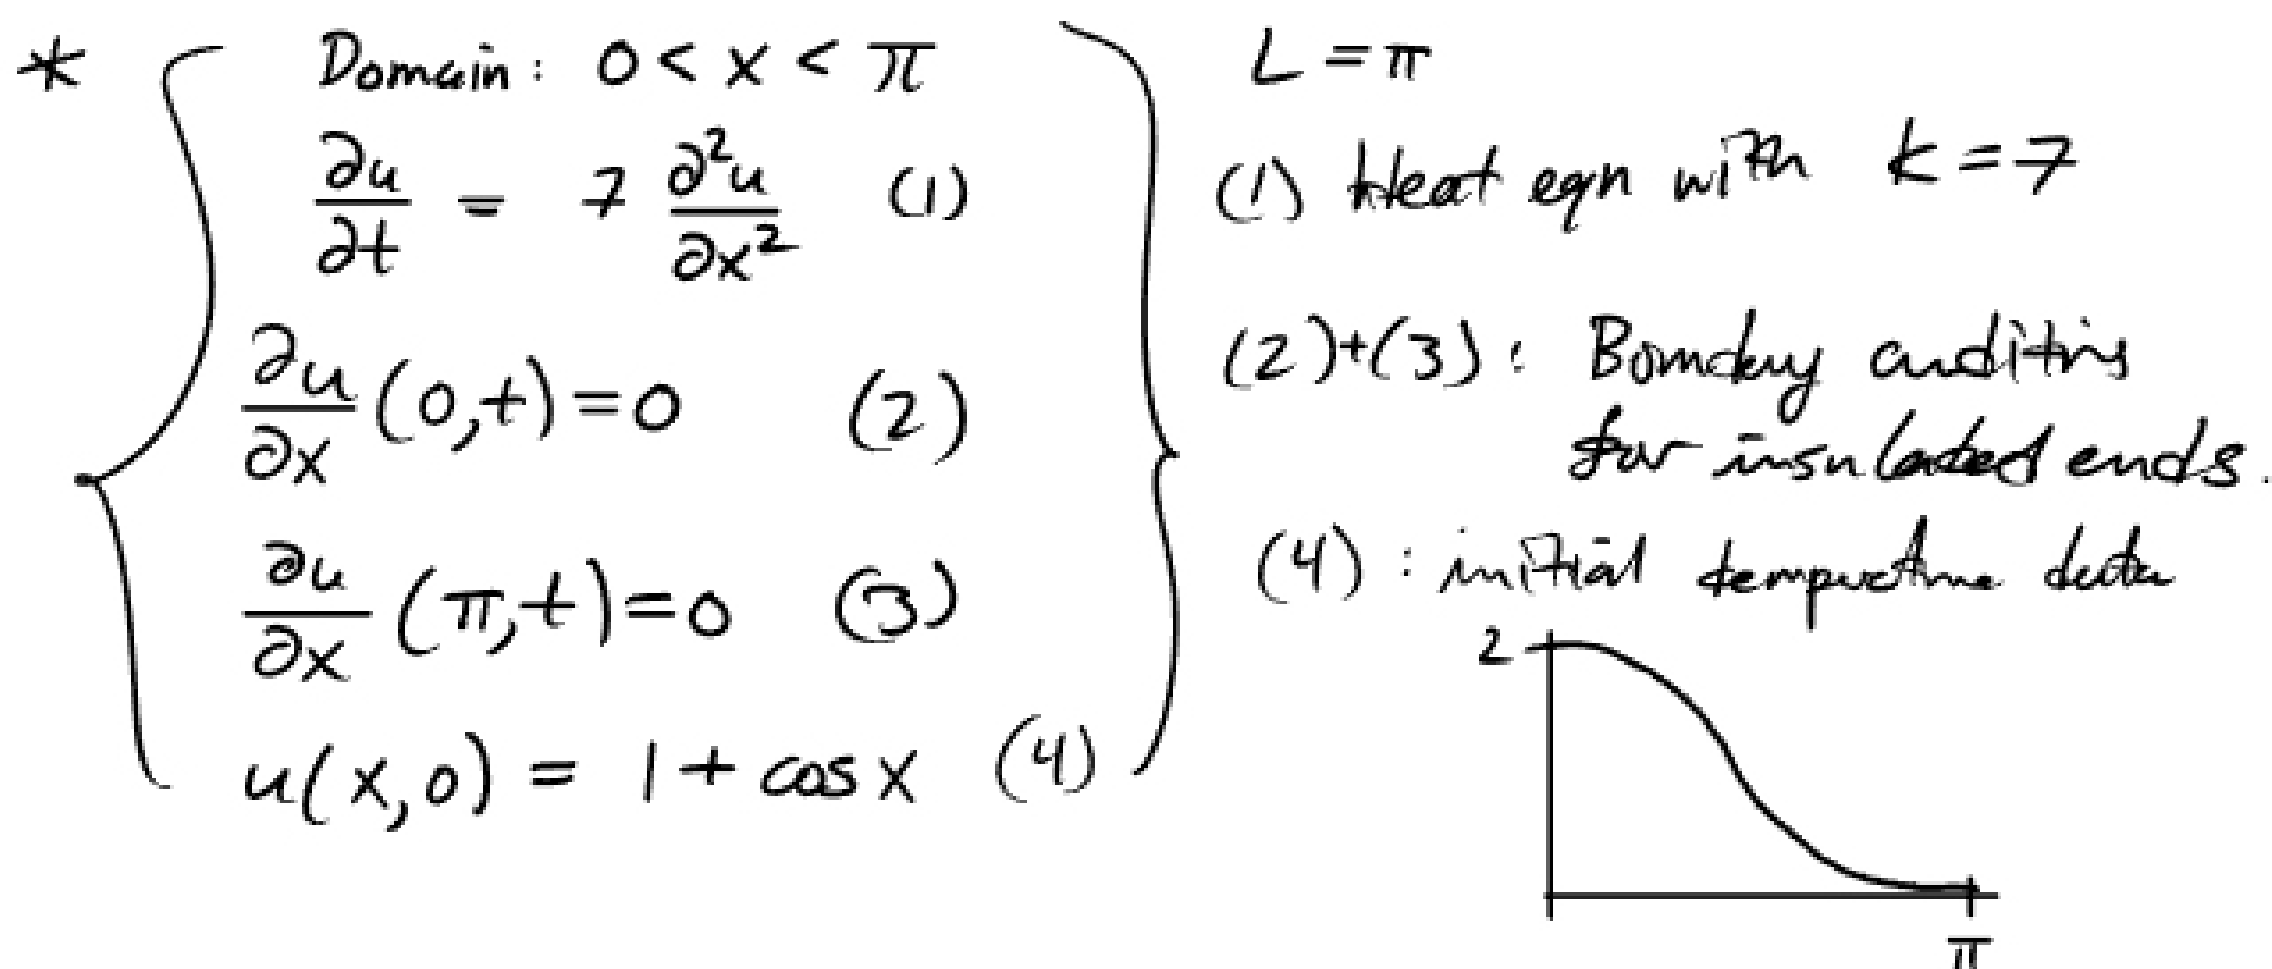 * Domain: 0 < x < π
∂u/∂t = 7 ∂²u/∂x² (1)
∂u/∂x (0,t) = 0 (2)
∂u/∂x (π,t) = 0 (3)
u(x,0) = 1 + cos x (4)
L = π
(1) Heat eqn with k = 7
(2)+(3): Boundary conditions
for insulated ends.
(4): initial temperature data
2
π